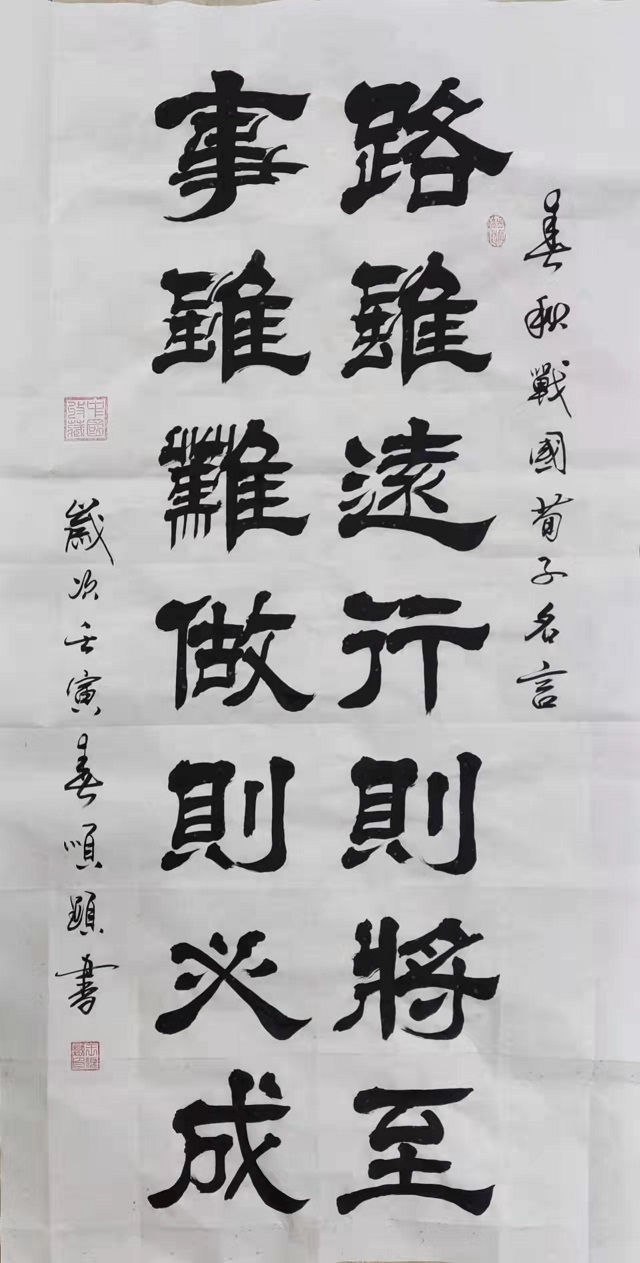 春秋戰國荀子名言
路雖遠行則將至
事雖難做則必成
歲次壬寅春順顕書
中國收藏